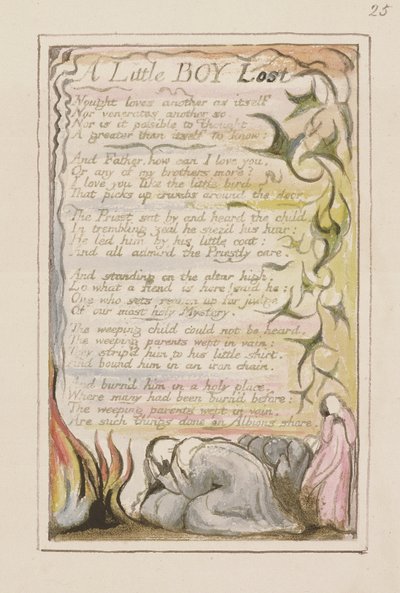 25
A Little BOY Lost
Nought loves another as itself
Nor venerates another so
Nor is it possible to Thought
A greater than itself to know:
And Father, how can I love you,
Or any of my brothers more?
I love you like the little bird
That picks up crumbs around the door.
The Priest sat by and heard the child
In trembling zeal he siez'd his hair:
He led him by his little coat:
And all admir'd the Priestly care.
And standing on the altar high,
Lo what a fiend is here! said he:
One who sets reason up for judge
Of our most holy Mystery.
The weeping child could not be heard,
The weeping parents wept in vain:
They strip'd him to his little shirt,
And bound him in an iron chain.
And burn'd him in a holy place,
Where many had been burn'd before:
The weeping parents wept in vain.
Are such things done on Albions shore.